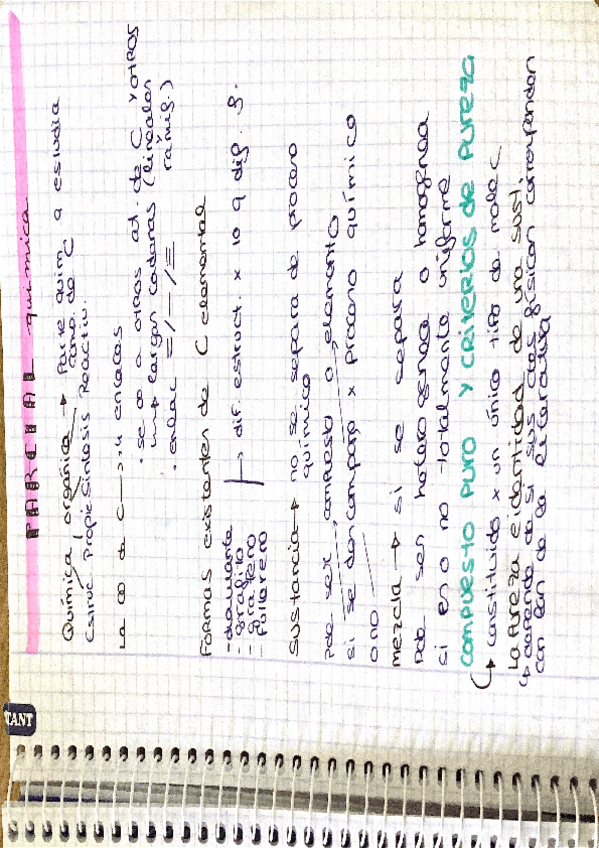 PARCIAL química
Química orgánica → Parte quim q estudia
comp. de C
Estruc Propie Síntesis Reactiv.
La ∞ de C → 4 enlaces
· se ∞ a otros át. de C y otros
↳ largas cadenas (lineales
ramif.)
· enlac =/-/≡
Formas existentes de C elemental
- diamante
- grafito
- grafeno
- fullereno
→ dif. estruct. x lo q dif. g.
Sustancia → no se separa de proceso
químico
Pde ser compuesto o elemento
si se descompone x proceso químico
o no
mezcla → si se separa
Pde ser heterogénea o homogénea
si es o no totalmente uniforme
COMPUESTO PURO Y CRITERIOS DE PUREZA
↳ constituido x un único tipo de molec
La Pureza e identidad de una sust.
↳ depende de si sus ctes físicas corresponden
con las de la literatura
TANT